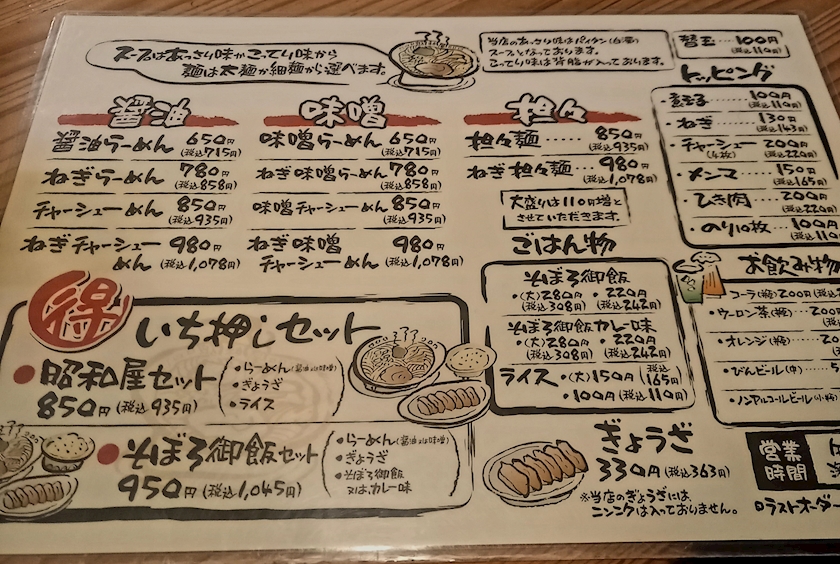 スープはあっさり味かこってり味から
麺は太麺か細麺から選べます。
当店のあっさり味はパイタン(白湯)
スープとなっております。
こってり味は背脂が入っております。
替玉…100円
(税込110円)
醤油
醤油らーめん 650円
(税込715円)
ねぎらーめん 780円
(税込858円)
チャーシューめん 850円
(税込935円)
ねぎチャーシュー 980円
めん (税込1,078円)
味噌
味噌らーめん 650円
(税込715円)
ねぎ味噌らーめん 780円
(税込858円)
味噌チャーシューめん 850円
(税込935円)
ねぎ味噌 980円
チャーシューめん (税込1,078円)
担々
担々麺……850円
(税込935円)
ねぎ担々麺…980円
(税込1,078円)
大盛りは110円増と
させていただきます。
トッピング
100円
(税込110円)
・ねぎ……130円
(税込143円)
・チャーシュー 200円
(4枚) (税込220円)
・メンマ……150円
(税込165円)
・ひき肉……200円
(税込220円)
・のり10枚…100円
(税込110
ごはん物
そぼろ御飯
・(大)280円 ・220円
(税込308円) (税込242円)
そぼろ御飯カレー味
・(大)280円 ・220円
(税込308円) (税込242円)
ライス・(大)150円 (税込165円)
・100円(税込110円)
お飲み物
・コーラ(瓶)200円(税込
・ウーロン茶(瓶)…200
・オレンジ(瓶)……20
・びんビール(中)…5
・ノンアルコールビール(小瓶)
得 いち押しセット
●昭和屋セット
850円(税込935円)
・らーめん(醤油又は味噌)
・ぎょうざ
・ライス
●そぼろ御飯セット
950円(税込1,045円)
・らーめん(醤油又は味噌)
・ぎょうざ
・そぼろ御飯
又はカレー味
ぎょうざ
330円(税込363円)
※当店のぎょうざには、
ニンニクは入っておりません。
営業
時間
ラストオーダー